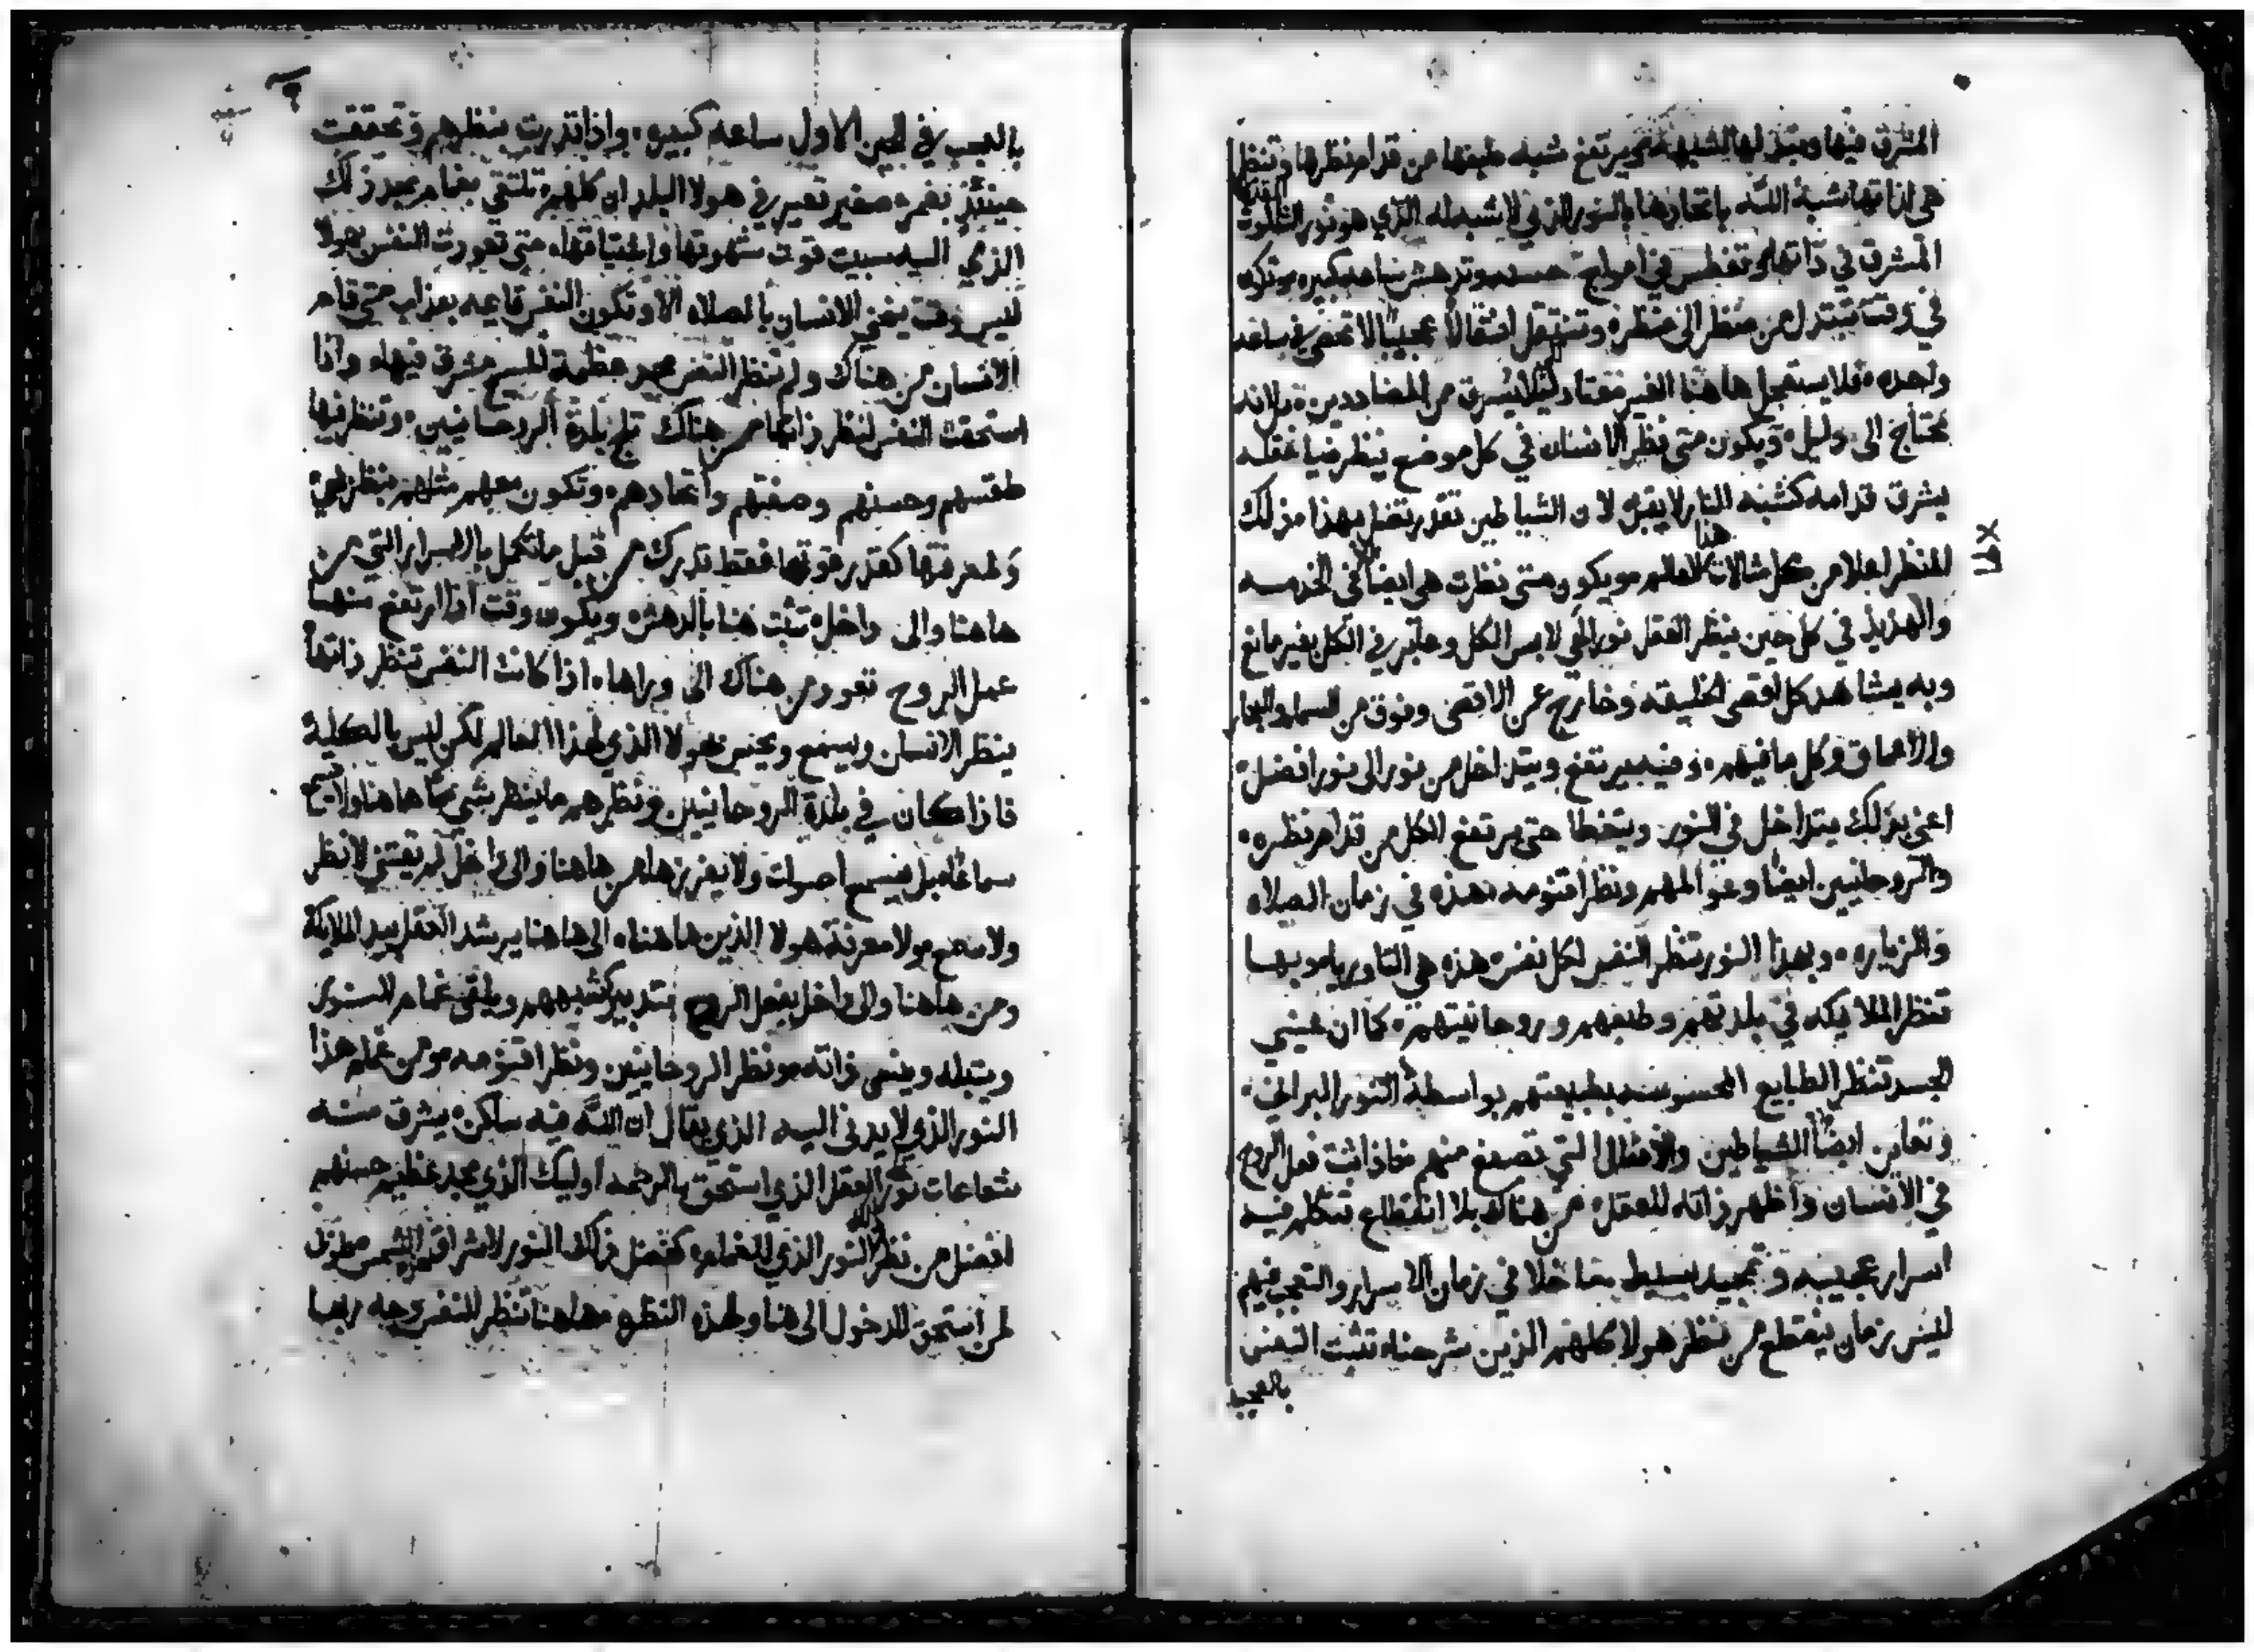 المشرق فيها ويتبدل لها الشبه ويرتفع شبه طبعها من قدام نظرها وتنظر
هي لذاتها بشبه الله باتحادها بالنور الذي لا شبه له الذي هو نور الثالوث القدس
المشرق في ذاتها وتغطس في امواج حسنه وتدهش ساعه كبيره وتكون
في وقت تتبدل من منظر الى منظر وتنتقل انتقالا عجيبا لا تحصى في ساعه
واحده فلا يستعجل هاهنا الغير معتاد ليلا يسرق من المضاددين لانه
محتاج الى دليل ويكون متى نظر الانسان في كل موضع ينظر ضيا عقله
يشرق قدامه كشبه النار لا يقبل هذا لان الشياطين تقدر تضل بهذا مزلك
المنظر اعلا من كل مثالات العالم ويكون متى نظرت هي ايضا في الخدمه
والهذيذ في كل حين ينظر العقل نور الحي لابس الكل وحاير في الكل بغير مانع
وبه يشاهد كل اقصى الخليقه وخارج عن الاقصى وفوق من السما والبحار
والاعماق وكل ما فيهم وفيه يرتفع ويتداخل من نور الى نور افضل
اعني بذلك يتداخل في النور ويتخطا حتى يرتفع الكل من قدام نظره
والروحانيين ايضا وعوالمهم ونظر اقنومه هذه في زمان الصلاه
والزياره وبهذا النور تنظر النفس لكل نفس هذه هي التاوريا وبها
تنظر الملايكه في بلدتهم وطبعهم وروحانيتهم كما ان عيني
الجسد تنظر الطبايع المحسوسه بطبيعتهم بواسطة النور البراني
وتعاين ايضا الشياطين والافعال التي تصنع منهم فاذا ثبت فعل الروح
في الانسان واظهر ذاته للعقل من هناك بلا انقطاع تتكلم فيه
اسرار عجيبه وتمجيد بسيط ما خلا في زمان الاسرار والتعجب فيهم
ليس زمان ينقطع من نظر هولا كلهم الذين شرحناه تثبت النفس
بالعجب
بالعجب في الحين الاول ساعه كبيره واذا تدربت بنظرهم وتحققت
حينئذ بفمره صغير تعبر في هولا البلدان كلهم تلتقي بغمام مجد ذلك
الذي اليه سبيت قوت شهوتها واجتياقها متى تعورت النفس بهولا
ليس وقت يغني الانسان بالصلاه الا وتكون النفس قاعيه بعذاب حتى قام
الانسان من هناك ولم تنظر النفس مجد عظمة المسيح مشرق فيها واذا
استحقت النفس لنظر ذاتها من هناك تلج بلدة الروحانيين وتنظر فيها
طقسهم وحسنهم وصفتهم واتحادهم وتكون معهم مثلهم بنظرهم
ولمعرفتها كقدر قوتها فقط تدرك من قبل ما تكمل بالاسرار التي من
هاهنا والى داخل تثبت هنا بالدهش ويكون وقت اذا ارتفع منها
عمل الروح تعود من هناك الى وراها اذا كانت النفس تنظر ذاتها
ينظر الانسان ويسمع ويحس بهولا الذي لهذا العالم لكن ليس بالكلية
فاذا كان في بلدة الروحانيين ونظرهم ما ينظر بشي مما هاهنا ولا يسمع
سماعا بل يسمع اصوات ولا يفرزها من هاهنا والى داخل لم يقتني لا نظر
ولا سمع ولا معرفة هولا الذين هاهنا الى هاهنا يرشد العقل بيد الملايكة
ومن هاهنا والى داخل بفعل الروح يتدبر كشبههم ويلقى غمام النور
ويتبله وينسى ذاته ونظر الروحانيين ونظر اقنومه ومن عمله هذا
النور الذي لا يدنى اليه الذي يقال ان الله فيه ساكن يشرق منه
شعاعات نور العقل الذي استحق بالرحمه اوليك الذي مجد عظيم حسنهم
افضل من نظر النور الذي للغمام كفضل ذلك النور لاشراق الشمس طوبى
لمن استحق للدخول الى هنا ولهذه النظره هاهنا تنظر النفس وجه ربها